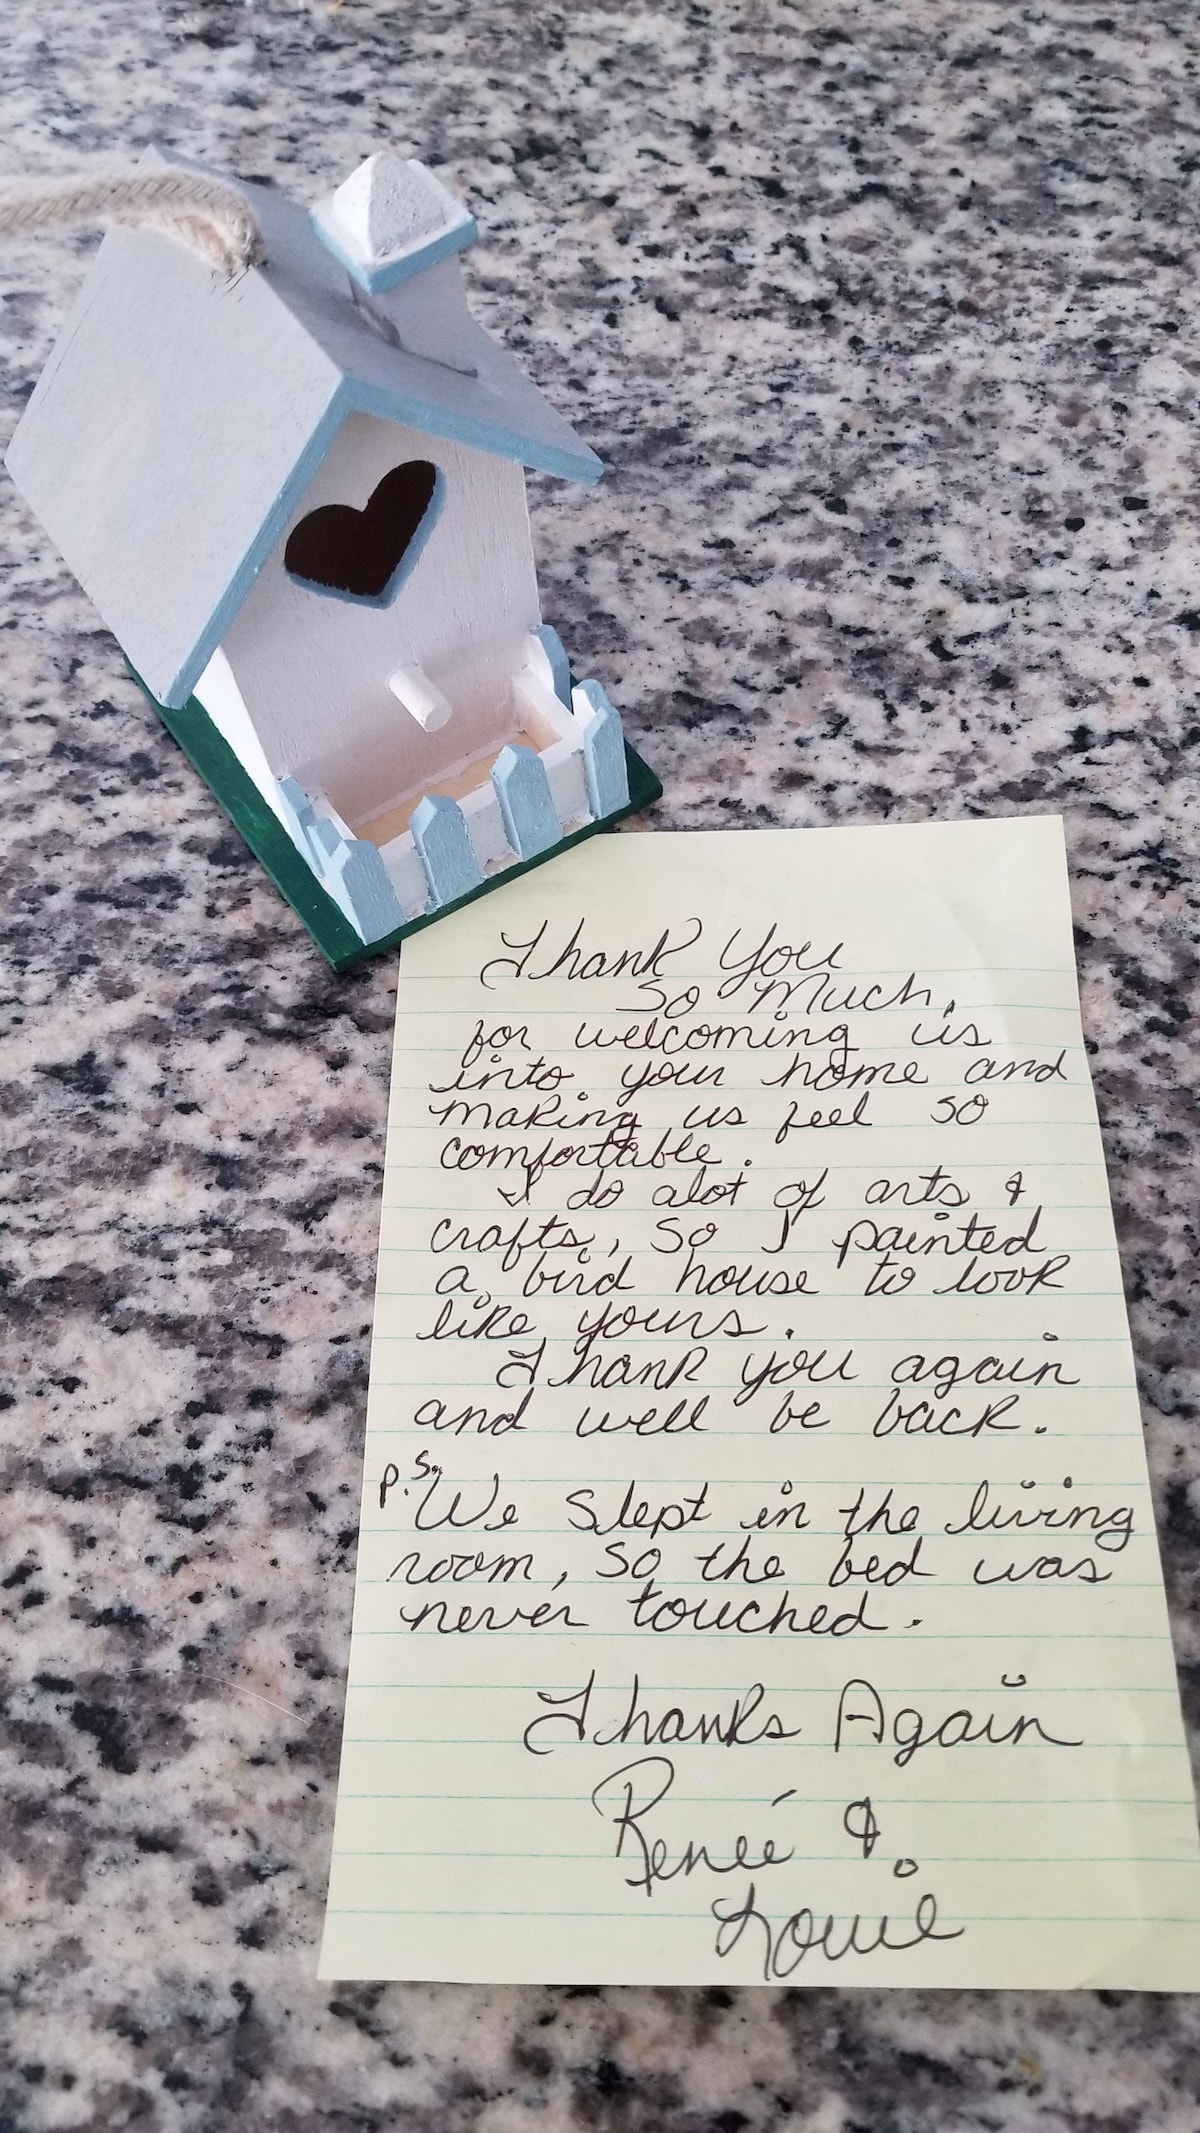 Thank You
So Much,
for welcoming us
into your home and
making us feel so
comfortable.
I do alot of arts &
crafts, so I painted
a bird house to look
like yours.
Thank you again
and well be back.
P.S. We slept in the living
room, so the bed was
never touched.
Thanks Again
Reneé &
Louie